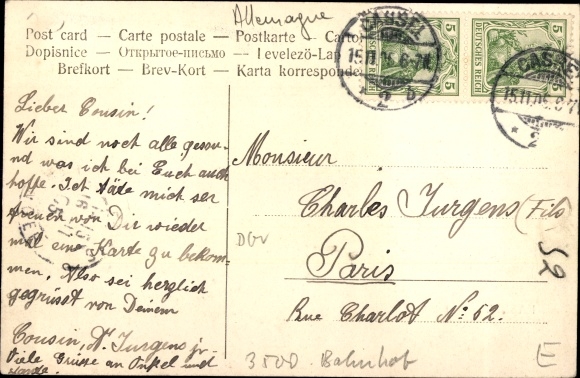 Allemagne
Post card — Carte postale — Postkarte — Cartol
Dopisnice — Открытое-письмо — Levelezö-Lap
Brefkort — Brev-Kort — Karta korresponde
5
DEUTSCHES REICH
5
DEUTSCHES REICH
CASSEL
15.11.05.6-7N.
* 2 b.
CASSEL
15.11.05.6-7N
* 2
Lieber Cousin!
Wir sind noch alle gesou-
nd was ich bei Euch auch
hoffe. Ich täte mich ser
freuen von Dir wieder
mal eine Karte zu bekom-
men. Also sei herzlich
gegrüsst von Deinem
Cousin, W. Jurgens jr.
Viele Grüsse an Onkel und
Monsieur
Charles Jurgens (Fils
Paris
Rue Charlot No: 62.
52
3500. Bahnhof
E